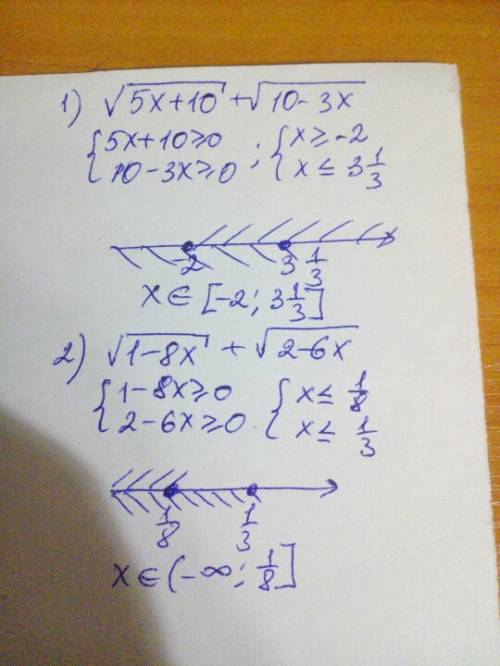 1) √5x+10 + √10-3x
{5x+10≥0 ; {x≥-2
{10-3x≥0 {x≤3 1/3
-2 3 1/3
x∈[-2; 3 1/3]
2) √1-8x + √2-6x
{1-8x≥0 {x≤ 1/8
{2-6x≥0. {x≤ 1/3
1/8 1/3
x∈(-∞; 1/8]